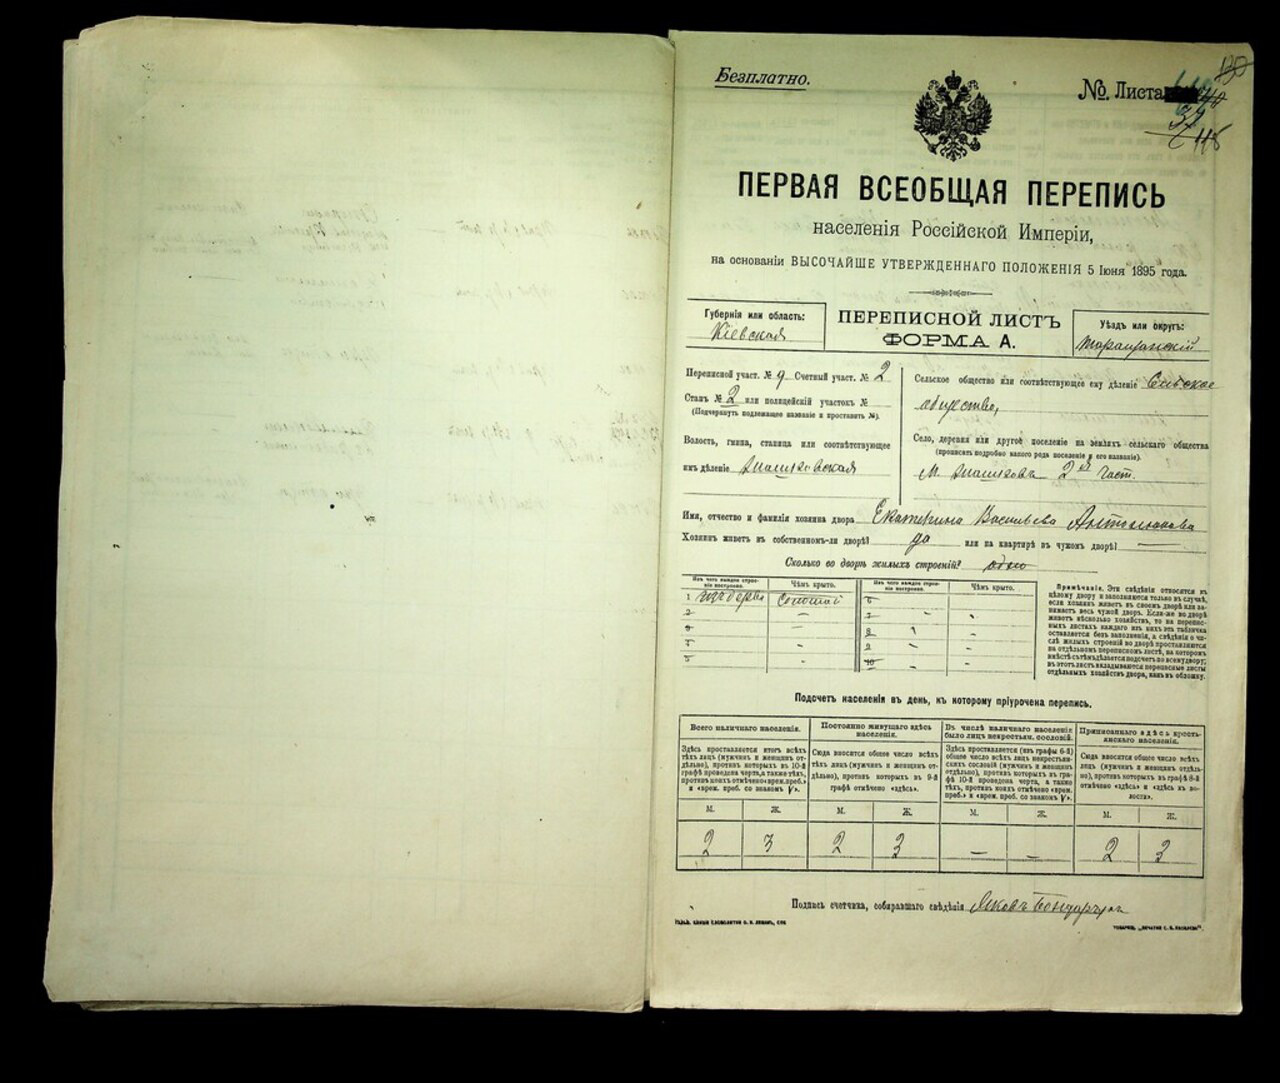 Безплатно.
№ Листа
37
ПЕРВАЯ ВСЕОБЩАЯ ПЕРЕПИСЬ
населенія Россійской Имперіи,
на основаніи ВЫСОЧАЙШЕ УТВЕРЖДЕННАГО ПОЛОЖЕНІЯ 5 Іюня 1895 года.
Губернія или область:
Кіевская
ПЕРЕПИСНОЙ ЛИСТЪ
ФОРМА А.
Уѣздъ или округъ:
Таращанскій
Переписной участ. № 9 Счетный участ. № 2
Станъ № 2 или полицейскій участокъ №
(Подчеркнуть подлежащее названіе и проставить №).
Волость, гмина, станица или соотвѣтствующее
имъ дѣленіе
Сельское общество или соотвѣтствующее ему дѣленіе
общество,
Село, деревня или другое поселеніе на земляхъ сельскаго общества
(прописать подробно какого рода поселеніе и его названіе).
М. 2й част.
Имя, отчество и фамилія хозяина двора Екатерина Васильева
Хозяинъ живетъ въ собственномъ-ли дворѣ? да или на квартирѣ въ чужомъ дворѣ? —
Сколько во дворѣ жилыхъ строеній? одно
Изъ чего каждое строеніе построено. Чѣмъ крыто. Изъ чего каждое строеніе построено. Чѣмъ крыто.
1 изъ дерева соломой 6
2 7
3 8
4 9
5 10
Примѣчаніе. Эти свѣдѣнія относятся къ
цѣлому двору и заполняются только въ случаѣ,
если хозяинъ живетъ въ своемъ дворѣ или занимаетъ
весь чужой дворъ. Если-же во дворѣ
живетъ нѣсколько хозяйствъ, то на переписныхъ
листахъ каждаго изъ нихъ эта табличка
оставляется безъ заполненія, а свѣдѣнія о числѣ
жилыхъ строеній во дворѣ проставляются
на отдѣльномъ переписномъ листѣ, на которомъ
вмѣстѣ съ тѣмъ дѣлается подсчетъ по всему двору;
въ этотъ листъ вкладываются переписные листы
отдѣльныхъ хозяйствъ двора, какъ въ обложку.
Подсчетъ населенія въ день, къ которому пріурочена перепись.
Всего наличнаго населенія.
Здѣсь проставляется итогъ всѣхъ
тѣхъ лицъ (мужчинъ и женщинъ отдѣльно),
противъ которыхъ въ 10-й
графѣ проведена черта, а также тѣхъ,
противъ коихъ отмѣчено «врем. преб.»
и «врем. преб. со знакомъ V».
Постоянно живущаго здѣсь
населенія.
Сюда вносится общее число всѣхъ
тѣхъ лицъ (мужчинъ и женщинъ отдѣльно),
противъ которыхъ въ 9-й
графѣ отмѣчено «здѣсь».
Въ числѣ наличнаго населенія
было лицъ некрестьян. сословій.
Здѣсь проставляется (изъ графы 6-й)
общее число всѣхъ лицъ некрестьянскихъ
сословій (мужчинъ и женщинъ
отдѣльно), противъ которыхъ въ графѣ
10-й проведена черта, а также
тѣхъ, противъ коихъ отмѣчено «врем.
преб.» и «врем. преб. со знакомъ V».
Приписаннаго здѣсь крестьянскаго
населенія.
Сюда вносится общее число всѣхъ
лицъ (мужчинъ и женщинъ отдѣльно),
противъ которыхъ въ графѣ 8-й
отмѣчено «здѣсь» и «здѣсь въ волости».
М. Ж. М. Ж. М. Ж. М. Ж.
2 3 2 3 — — 2 3
Подпись счетчика, собиравшаго свѣдѣнія Яковъ Бондарчук